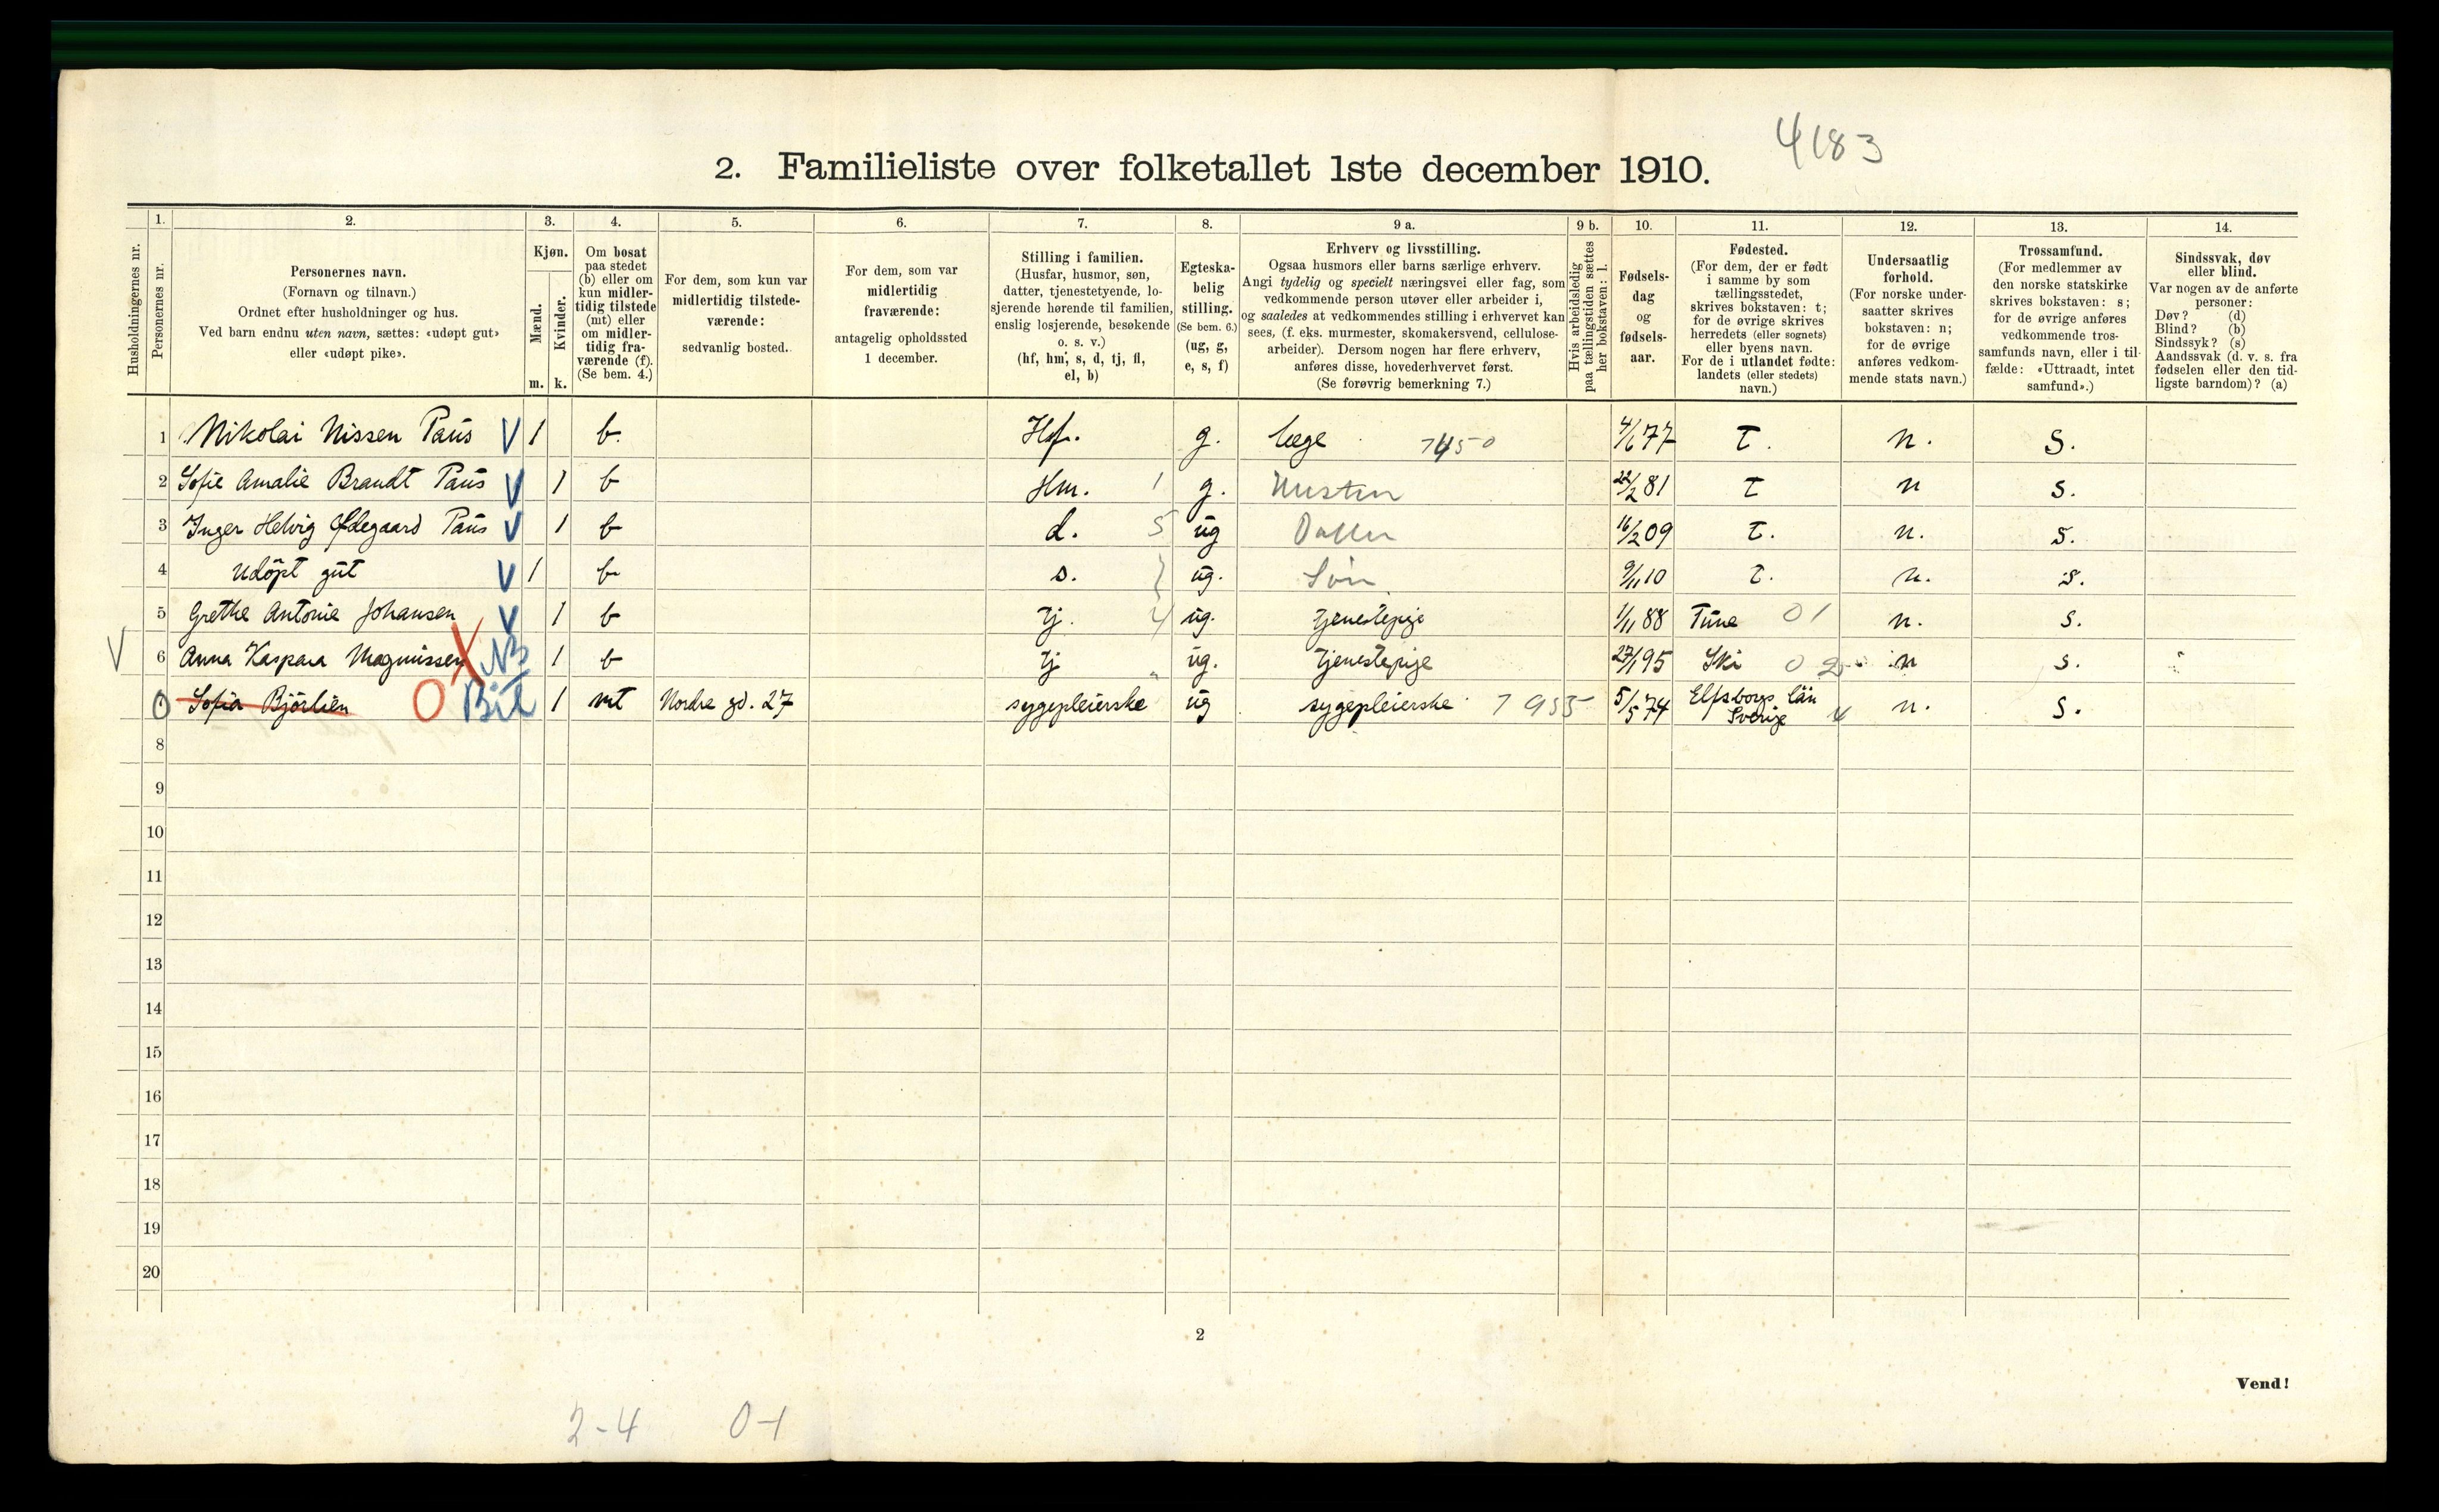 4183
2. Familieliste over folketallet 1ste december 1910.
Husholdningernes nr.
1. 2. 3. 4. 5. 6. 7. 8. 9 a. 9 b. 10. 11. 12. 13. 14.
Personernes nr.
Personernes navn.
(Fornavn og tilnavn.)
Ordnet efter husholdninger og hus.
Ved barn endnu uten navn, sættes: «udøpt gut»
eller «udøpt pike».
Kjøn.
Mænd.
Kvinder.
m. k.
Om bosat
paa stedet
(b) eller om
kun midler-
tidig tilstede
(mt) eller
om midler-
tidig fra-
værende (f).
(Se bem. 4.)
For dem, som kun var
midlertidig tilstede-
værende:
sedvanlig bosted.
For dem, som var
midlertidig
fraværende:
antagelig opholdssted
1 december.
Stilling i familien.
(Husfar, husmor, søn,
datter, tjenestetyende, lo-
sjerende hørende til familien,
enslig losjerende, besøkende
o. s. v.)
(hf, hm, s, d, tj, fl,
el, b)
Egteska-
belig
stilling.
(Se bem. 6.)
(ug, g,
e, s, f)
Erhverv og livsstilling.
Ogsaa husmors eller barns særlige erhverv.
Angi tydelig og specielt næringsvei eller fag, som
vedkommende person utøver eller arbeider i,
og saaledes at vedkommendes stilling i erhvervet kan
sees, (f. eks. murmester, skomakersvend, cellulose-
arbeider). Dersom nogen har flere erhverv,
anføres disse, hovederhvervet først.
(Se forøvrig bemerkning 7.)
Hvis arbeidsledig
paa tællingstiden sættes
her bokstaven: l.
Fødsels-
dag
og
fødsels-
aar.
Fødested.
(For dem, der er født
i samme by som
tællingsstedet,
skrives bokstaven: t;
for de øvrige skrives
herredets (eller sognets)
eller byens navn.
For de i utlandet fødte:
landets (eller stedets)
navn.)
Undersaatlig
forhold.
(For norske under-
saatter skrives
bokstaven: n;
for de øvrige
anføres vedkom-
mende stats navn.)
Trossamfund.
(For medlemmer av
den norske statskirke
skrives bokstaven: s;
for de øvrige anføres
vedkommende tros-
samfunds navn, eller i til-
fælde: «Uttraadt, intet
samfund».)
Sindssvak, døv
eller blind.
Var nogen av de anførte
personer:
Døv? (d)
Blind? (b)
Sindssyk? (s)
Aandssvak (d. v. s. fra
fødselen eller den tid-
ligste barndom)? (a)
1 Nikolai Nissen Paus V 1 b. Hf. g. læge 7450 4/6 77 t. n. S.
2 Sofie Amalie Brandt Paus V 1 b Hm. 1 g. Hustru 22/2 81 t n s.
3 Inger Helvig Ødegaard Paus V 1 b d. 5 ug Datter 16/2 09 t. n. s.
4 udöpt gut V 1 b s. ug. Søn 9/11 10 t. n. s.
5 Grethe Antonie Johansen V 1 b tj. 4 ug. tjenestepige 1/11 88 Tune 01 n. s.
V 6 Anna Kaspara Magnussen X NB 1 b tj " ug. tjenestepige 27/1 95 Ski 02 n s.
Sofia Björlien O Bil 1 mt Nordre gd. 27 sygepleierske ug sygepleierske 7955 5/5 74 Elfsborgs län
Sverige n. s.
8
9
10
11
12
13
14
15
16
17
18
19
20
2
Vend!
2-4 0-1